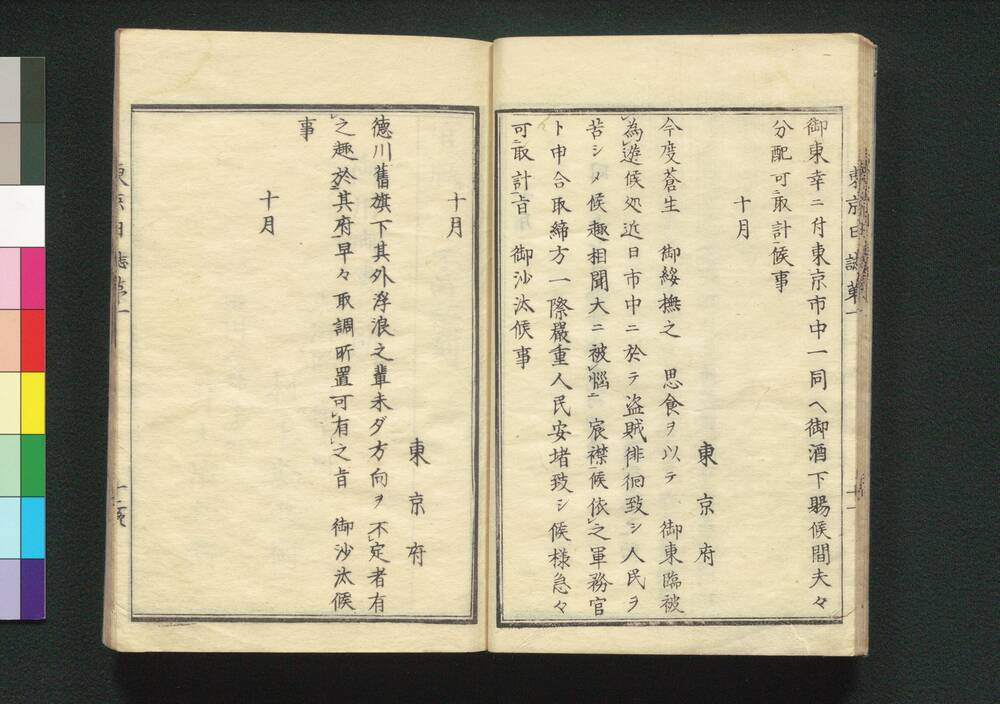 御東幸ニ付東京市中一同ヘ御酒下賜候間夫々
分配可取計候事
十月
東京府
今度蒼生　御綏撫之　思食ヲ以テ　御東臨被
為遊候処近日市中ニ於テ盗賊徘徊致シ人民ヲ
苦シメ候趣相聞大ニ被悩ニ　宸襟候依之軍務官
ト申合取締方一際嚴重人民安堵致シ候様急々
可取計旨　御沙汰候事
十月
東京府
德川舊旗下其外浮浪之輩未ダ方向ヲ不定者有
之趣於其府早々取調所置可有之旨　御沙汰候
事
十月
東京日誌第一